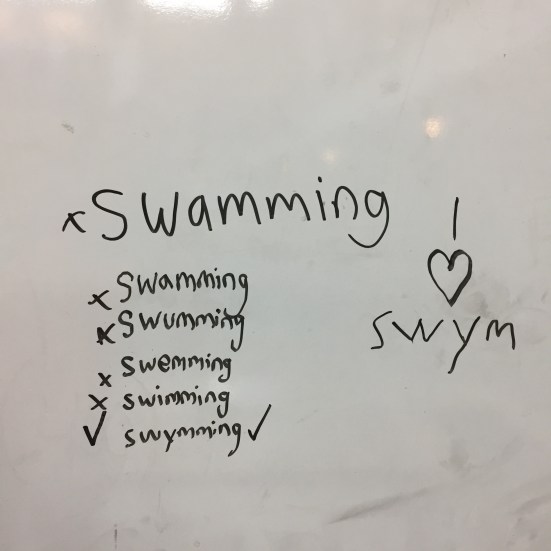 x Swamming
x Swamming
x Swumming
x swemming
x swimming
✓ swymming ✓
I
♡
swym